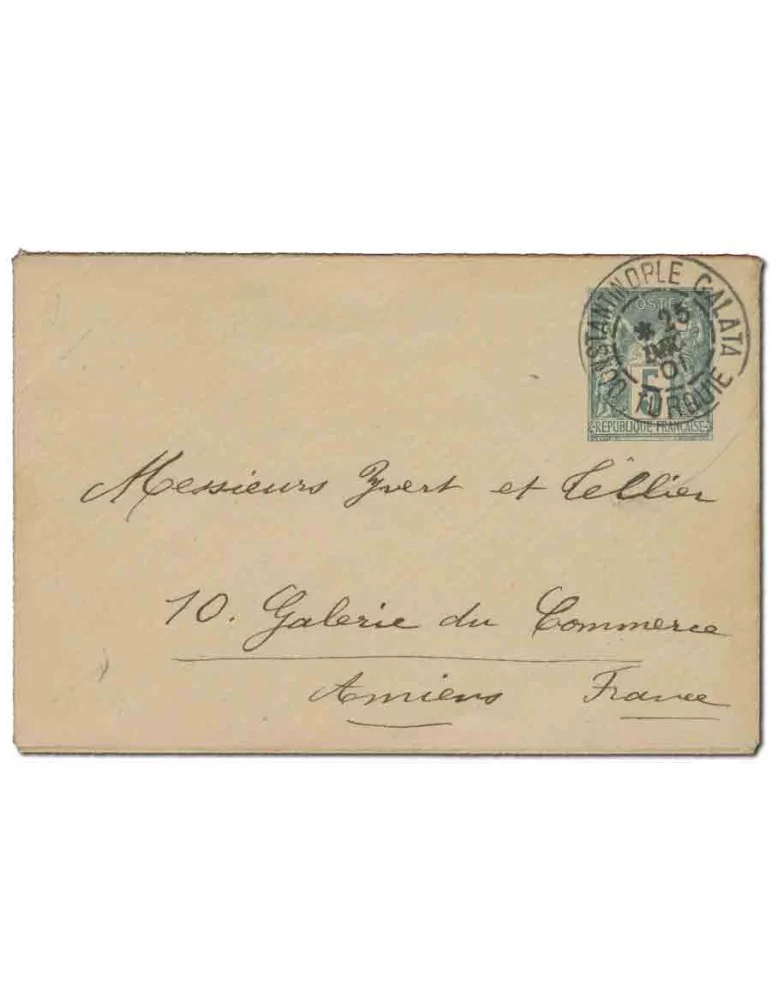 CONSTANTINOPLE GALATA
POSTES
* 25
DEC
01
5
TURQUIE
REPUBLIQUE FRANCAISE
Messieurs Yvert et Tellier
10. Galerie du Commerce
Amiens France